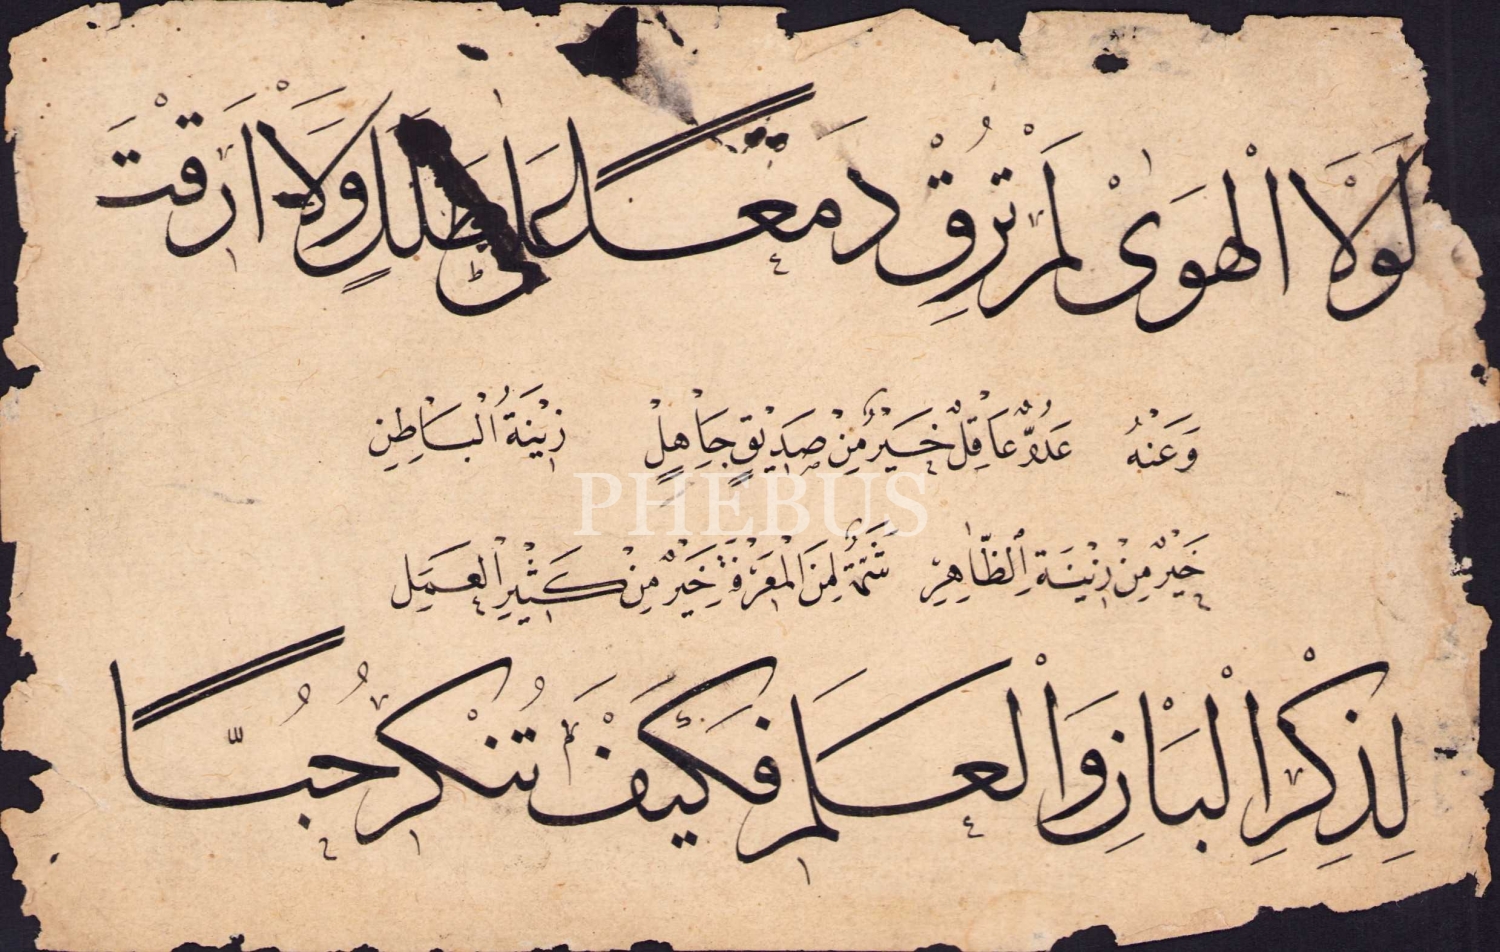 لَوْلَا الْهَوَىٰ لَمْ تُرِقْ دَمْعًا عَلَىٰ طَلَلٍ وَلَا اَرِقْتَ
وَعَنْهُ عَدُوٌّ عَاقِلٌ خَيْرٌ مِنْ صَدِيْقٍ جَاهِلٍ زِيْنَةُ الْبَاطِنِ
PHEBUS
خَيْرٌ مِنْ زِيْنَةِ الظَّاهِرِ شَمَّةٌ مِنَ الْمَعْرِفَةِ خَيْرٌ مِنْ كَثِيْرِ الْعَمَلِ
لِذِكْرِ الْبَانِ وَالْعَلَمِ فَكَيْفَ تُنْكِرُ حُبًّا